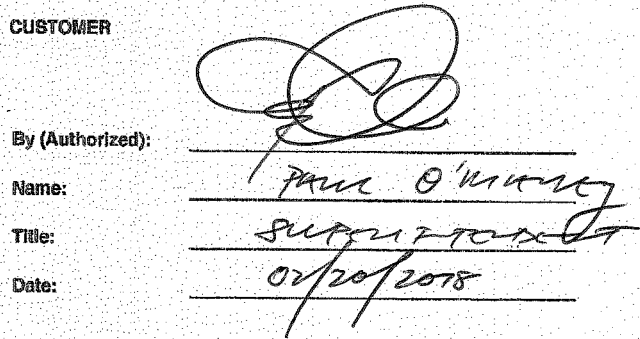 CUSTOMER
By (Authorized):
Name: PAUL O'MALLEY
Title: SUPERINTENDENT
Date: 02/20/2018